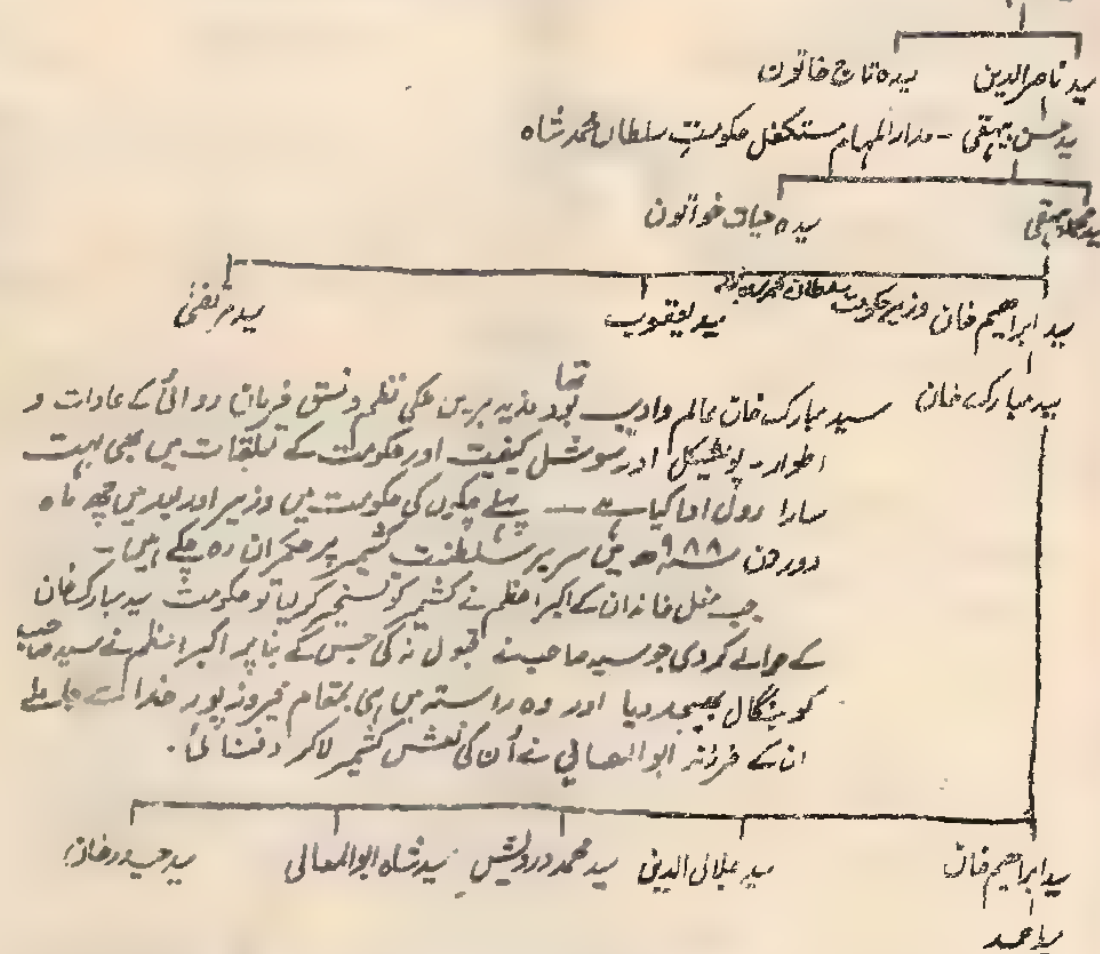 سید ناصرالدین سیدہ تاج خاتون
سید حسن بیہقی - مدارالمہام مستکفل حکومتِ سلطان محمد شاہ
سید محمد بیہقی سیدہ حیات خواتون
سید ابراہیم خان وزیر حکومت سلطان محمد شاہ سید یعقوب سید مرتضیٰ
سید مبارک خان
سید مبارک خان عالم وادیب تھا نظم و نسق فرمان روائی کے عادات و
اطوار - پولٹیکل اور سوشل کیفیت اور حکومت کے تعلقات میں بھی بہت
سارا رول ادا کیا ہے — پہلے چکوں کی حکومت میں وزیر اور بعد میں چھ ماہ
دو دن ۹۸۸ھ میں سریر سلطنت کشمیر پر حکمران رہ چکے ہیں -
جب مغل خاندان کے اکبر اعظم نے کشمیر کو تسخیر کر لیا تو حکومت سید مبارک خان
کے حوالے کردی جو سید صاحب نے قبول نہ کی جس کے بنا پر اکبر اعظم نے سید صاحب
کو بنگال بھیجدیا اور وہ راستہ میں ہی بمقام فیروز پور خدا سے جا ملے
ان کے فرزند ابوالمعالی نے اُن کی نعش کشمیر لاکر دفنائی۔
سید ابراہیم خان سید جلال الدین سید محمد درویش سید شاہ ابوالمعالی سید حیدر خان